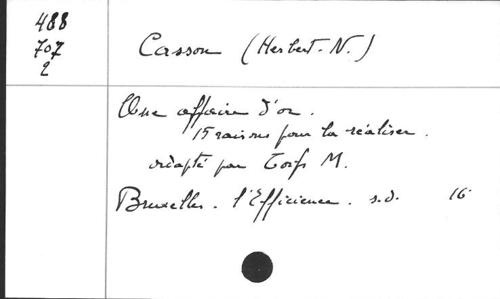 488
707
2
Casson (Herbert-N.)
Une affaire d'or.
15 raisons pour la réaliser.
adapté par M.
Bruxelles. l'Efficience. s.d. 16